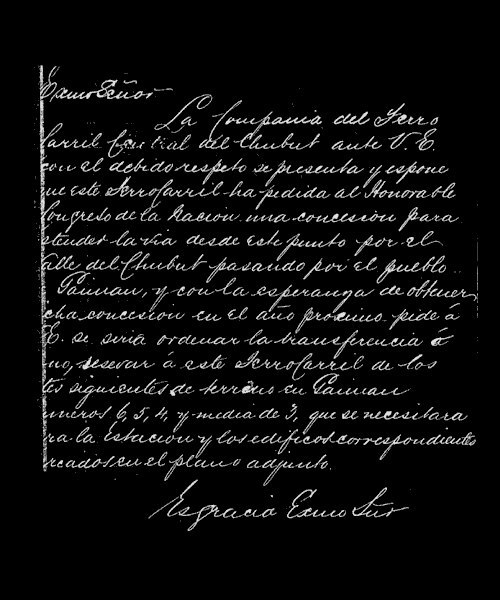 Exmo Señor
La Compania del Ferro
Carril Central del Chubut ante V. E.
con el debido respeto se presenta y espone
ue este Ferro Carril ha pedida al Honorable
Congreso de la Nacion una concesion para
stender la via desde este punto por el
alle del Chubut pasando por el pueblo
Gaiman, y con la esperanza de obtener
cha concesion en el año proximo pide á
E. se siria ordenar la transferencia ó
no, resevar á este Ferro Carril de los
tes siguientes de terreno en Gaiman
umeros 6, 5, 4, y media de 3, que se necesitara
ra la Estacion y los edificos correspondientes
rcados en el plano adjunto.
Es gracia Exmo Sñor